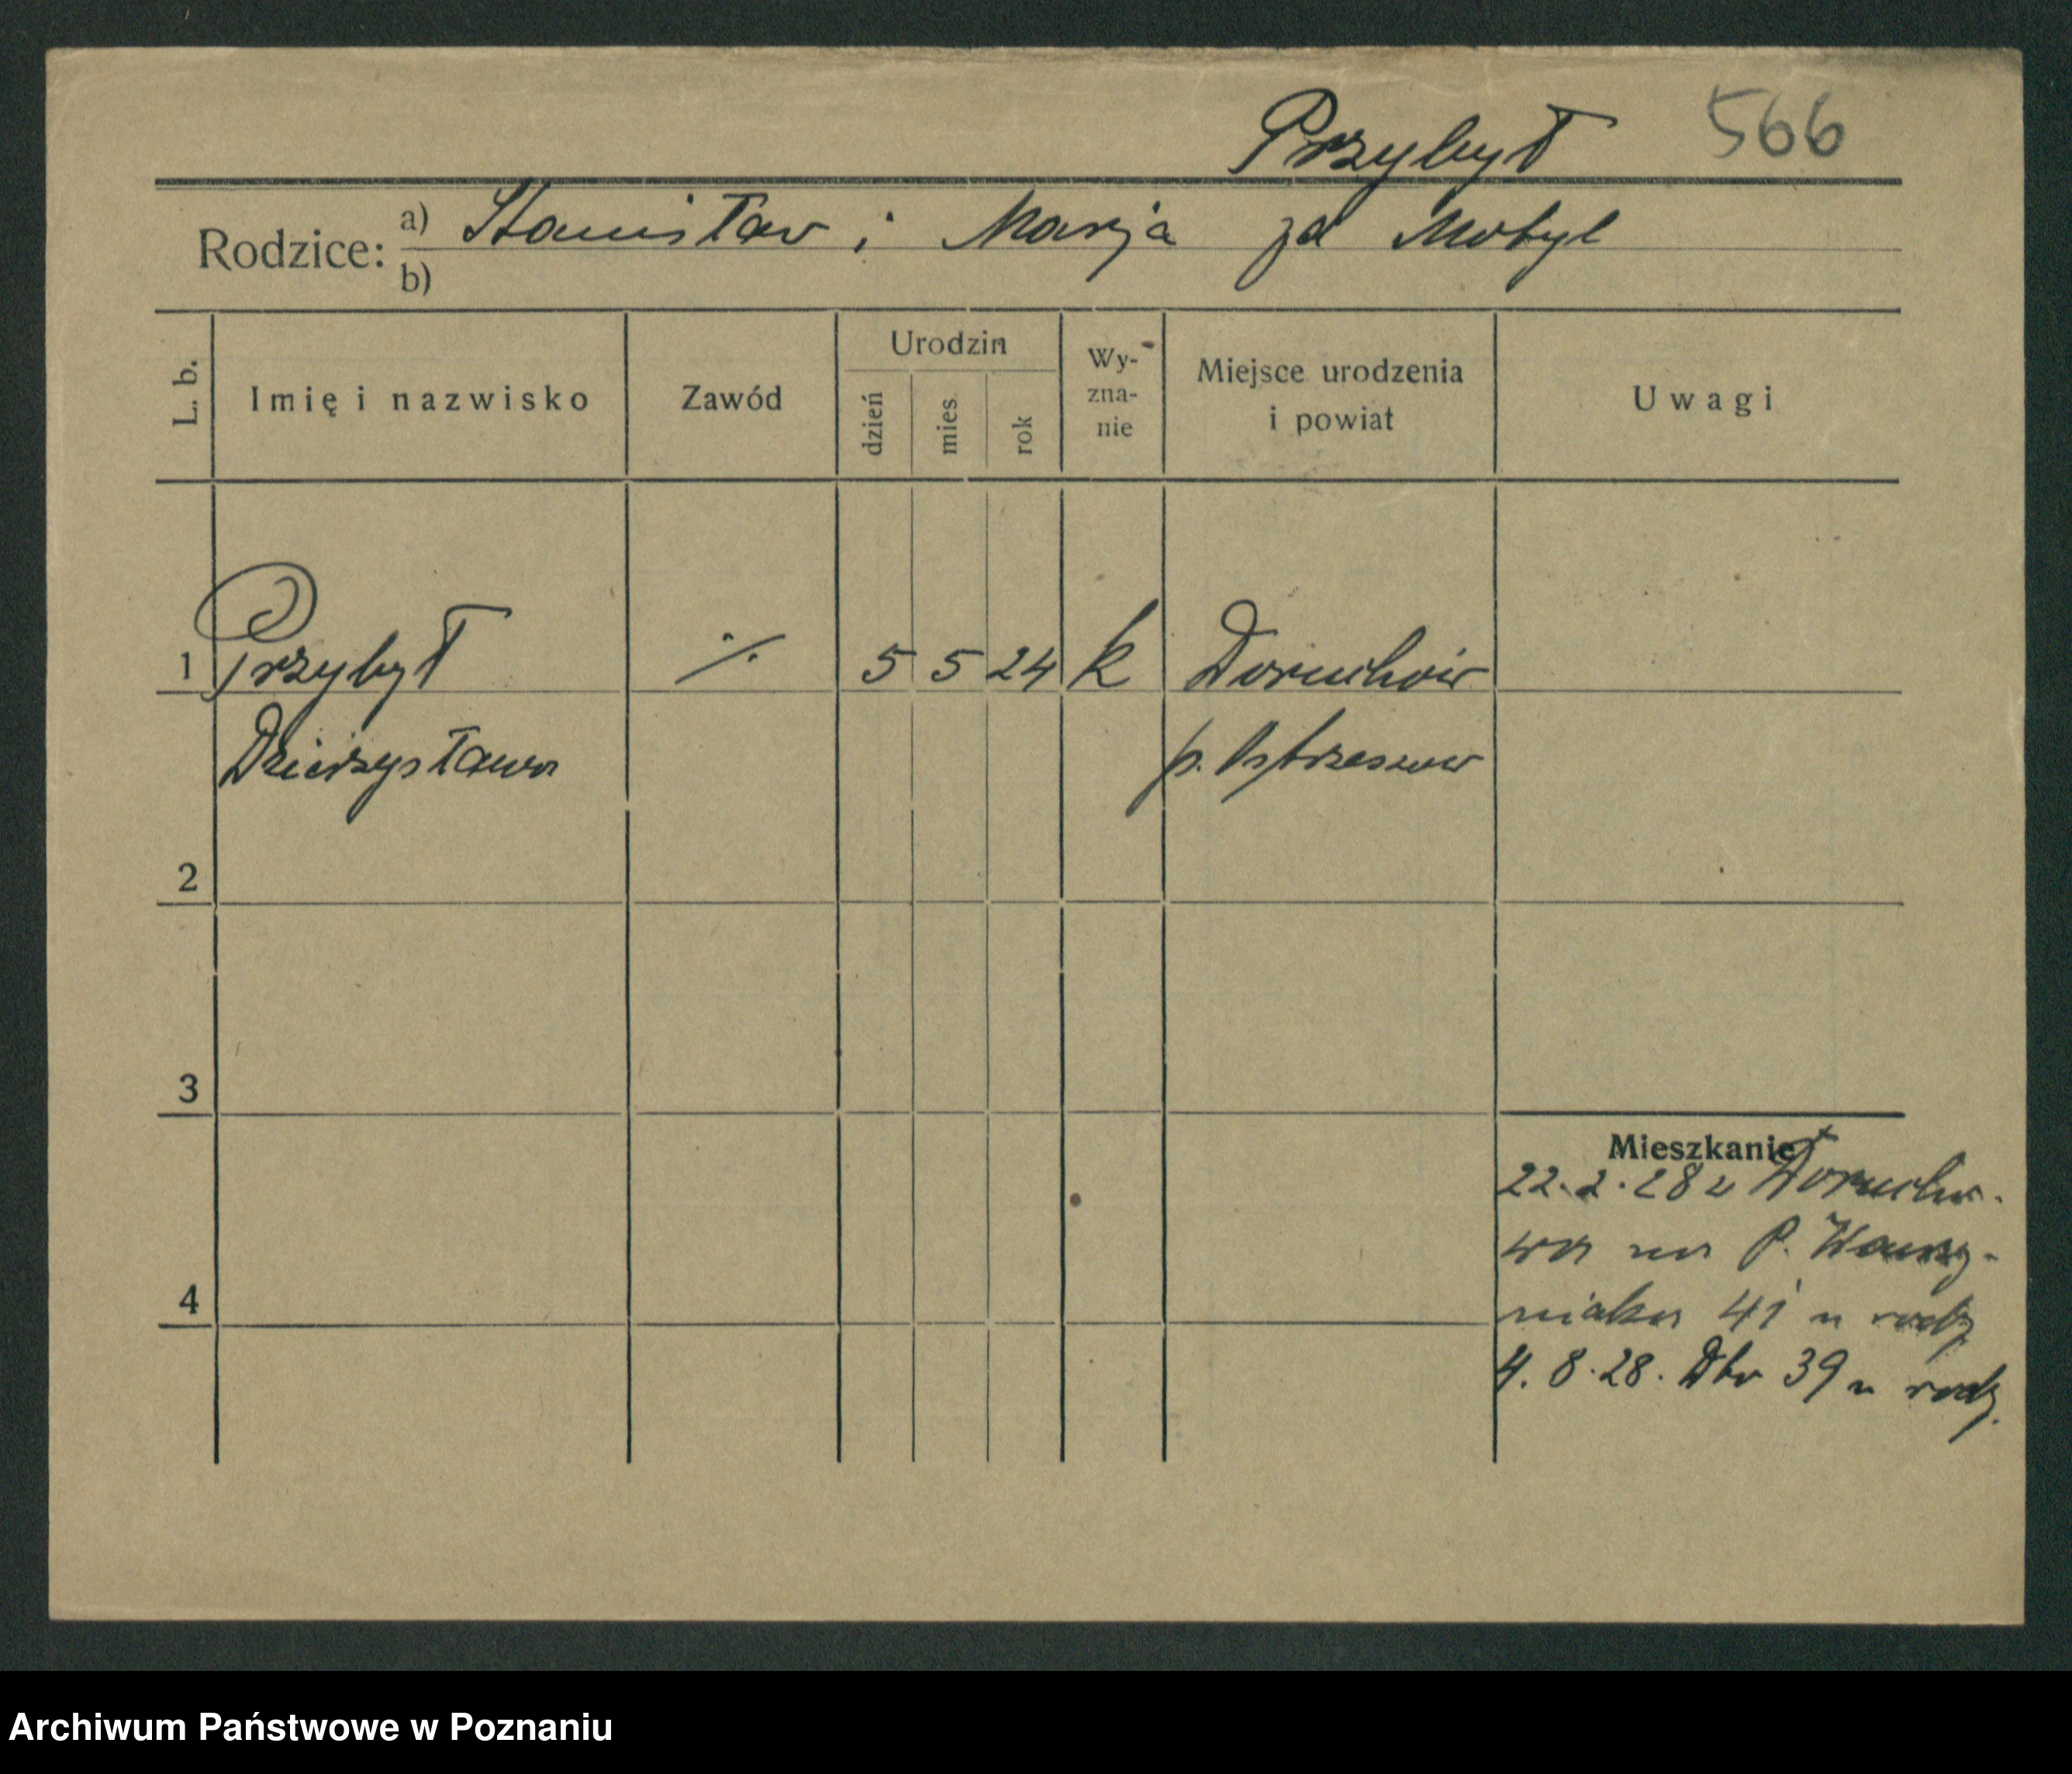 Przybył 566
Rodzice: a) Stanisław i Marja zd Motyl
b)
L. b. Imię i nazwisko Zawód Urodzin dzień mies. rok Wy-zna-nie Miejsce urodzenia i powiat Uwagi
1 Przybył ./. 5 5 24 k Doruchów
Dzierżysława p. Ostrzeszow
2
3
Mieszkanie
22.2.28 z Dorucho-
wa na P. Wawrzy-
niaka 41 u rodz
4
4.8.28. Dbr 39 u rodz.
Archiwum Państwowe w Poznaniu